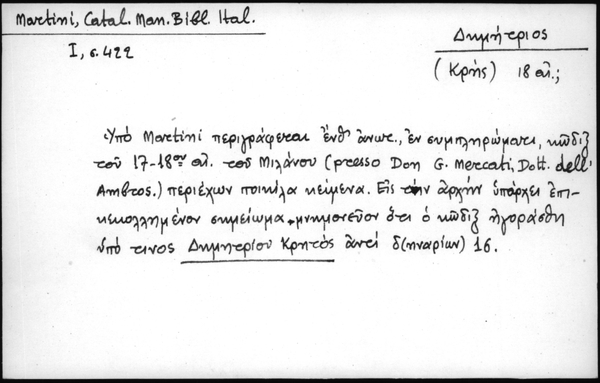 Martini, Catal. Man. Bibl. Ital.
I, σ. 422
Δημήτριος
(Κρής) 18 αἰ.;
Ὑπό Martini περιγράφεται ἔνθ' ἀνωτ., ἐν συμπληρώματι, κῶδιξ
τοῦ 17-18ου αἰ. τοῦ Μιλάνου (presso Don G. Mercati, Dott. dell'
Ambros.) περιέχων ποικίλα κείμενα. Εἰς τὴν ἀρχὴν ὑπάρχει ἐπι-
κεκολλημένον σημείωμα μνημονεῦον ὅτι ὁ κῶδιξ ἠγοράσθη
ὑπό τινος Δημητρίου Κρητὸς ἀντί δ(ηναρίων) 16.